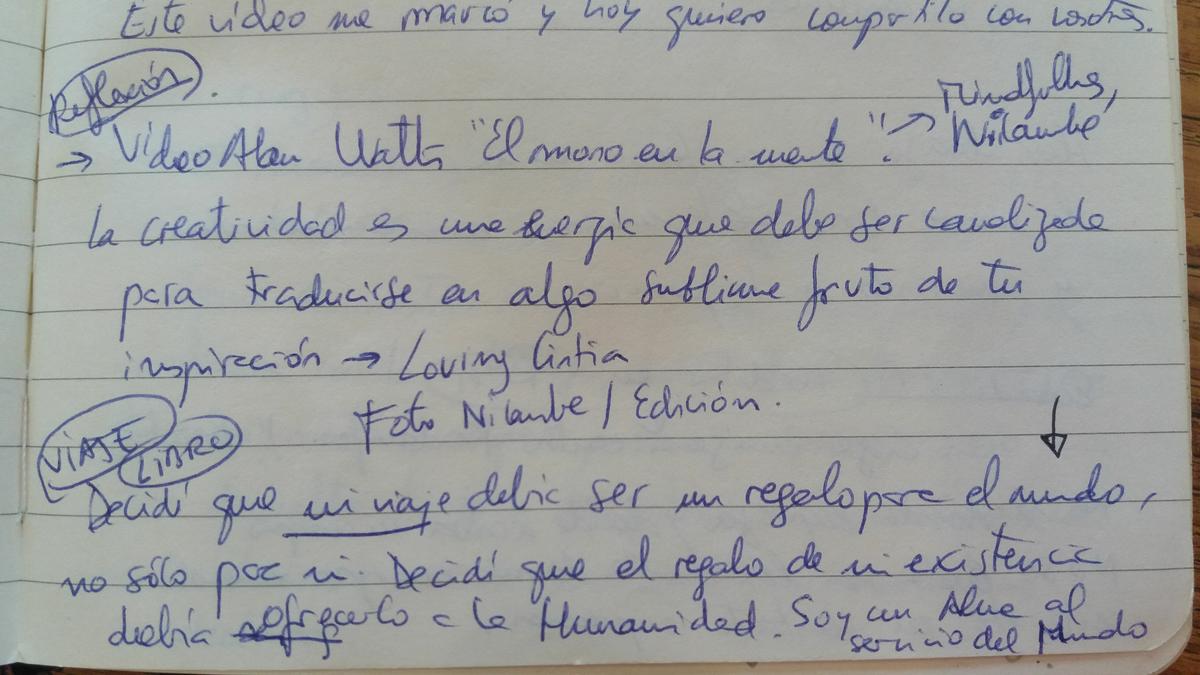 Este video me marcó y hoy quiero compartilo con vosotrxs.
Reflexión.
Mindfulnes,
→ Vídeo Alan Watts "El mono en la mente". → Nilambe
La creatividad es una energía que debe ser canalizada
para traducirse en algo sublime fruto de tu
inspiración → Loving Cintia
Foto Nilambe / Edición.
VIAJE
LIBRO
Decidí que mi viaje debía ser un regalo para el mundo,
no sólo para mi. Decidí que el regalo de mi existencia
debía ofrecerlo a la Humanidad. Soy un Alma al
servicio del Mundo